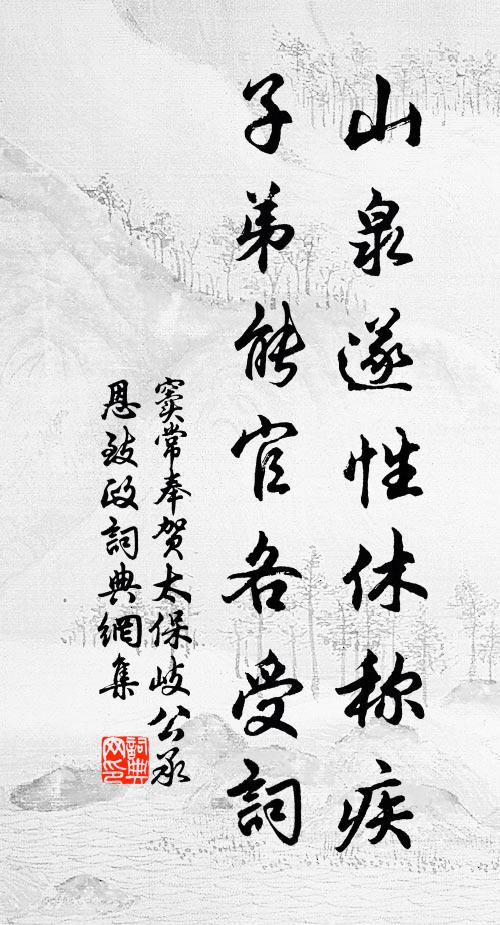 山泉遂性休称疾
子弟能官各受詞
窦常奉賀太保岐公承
恩致政詞典網集
詞典網印